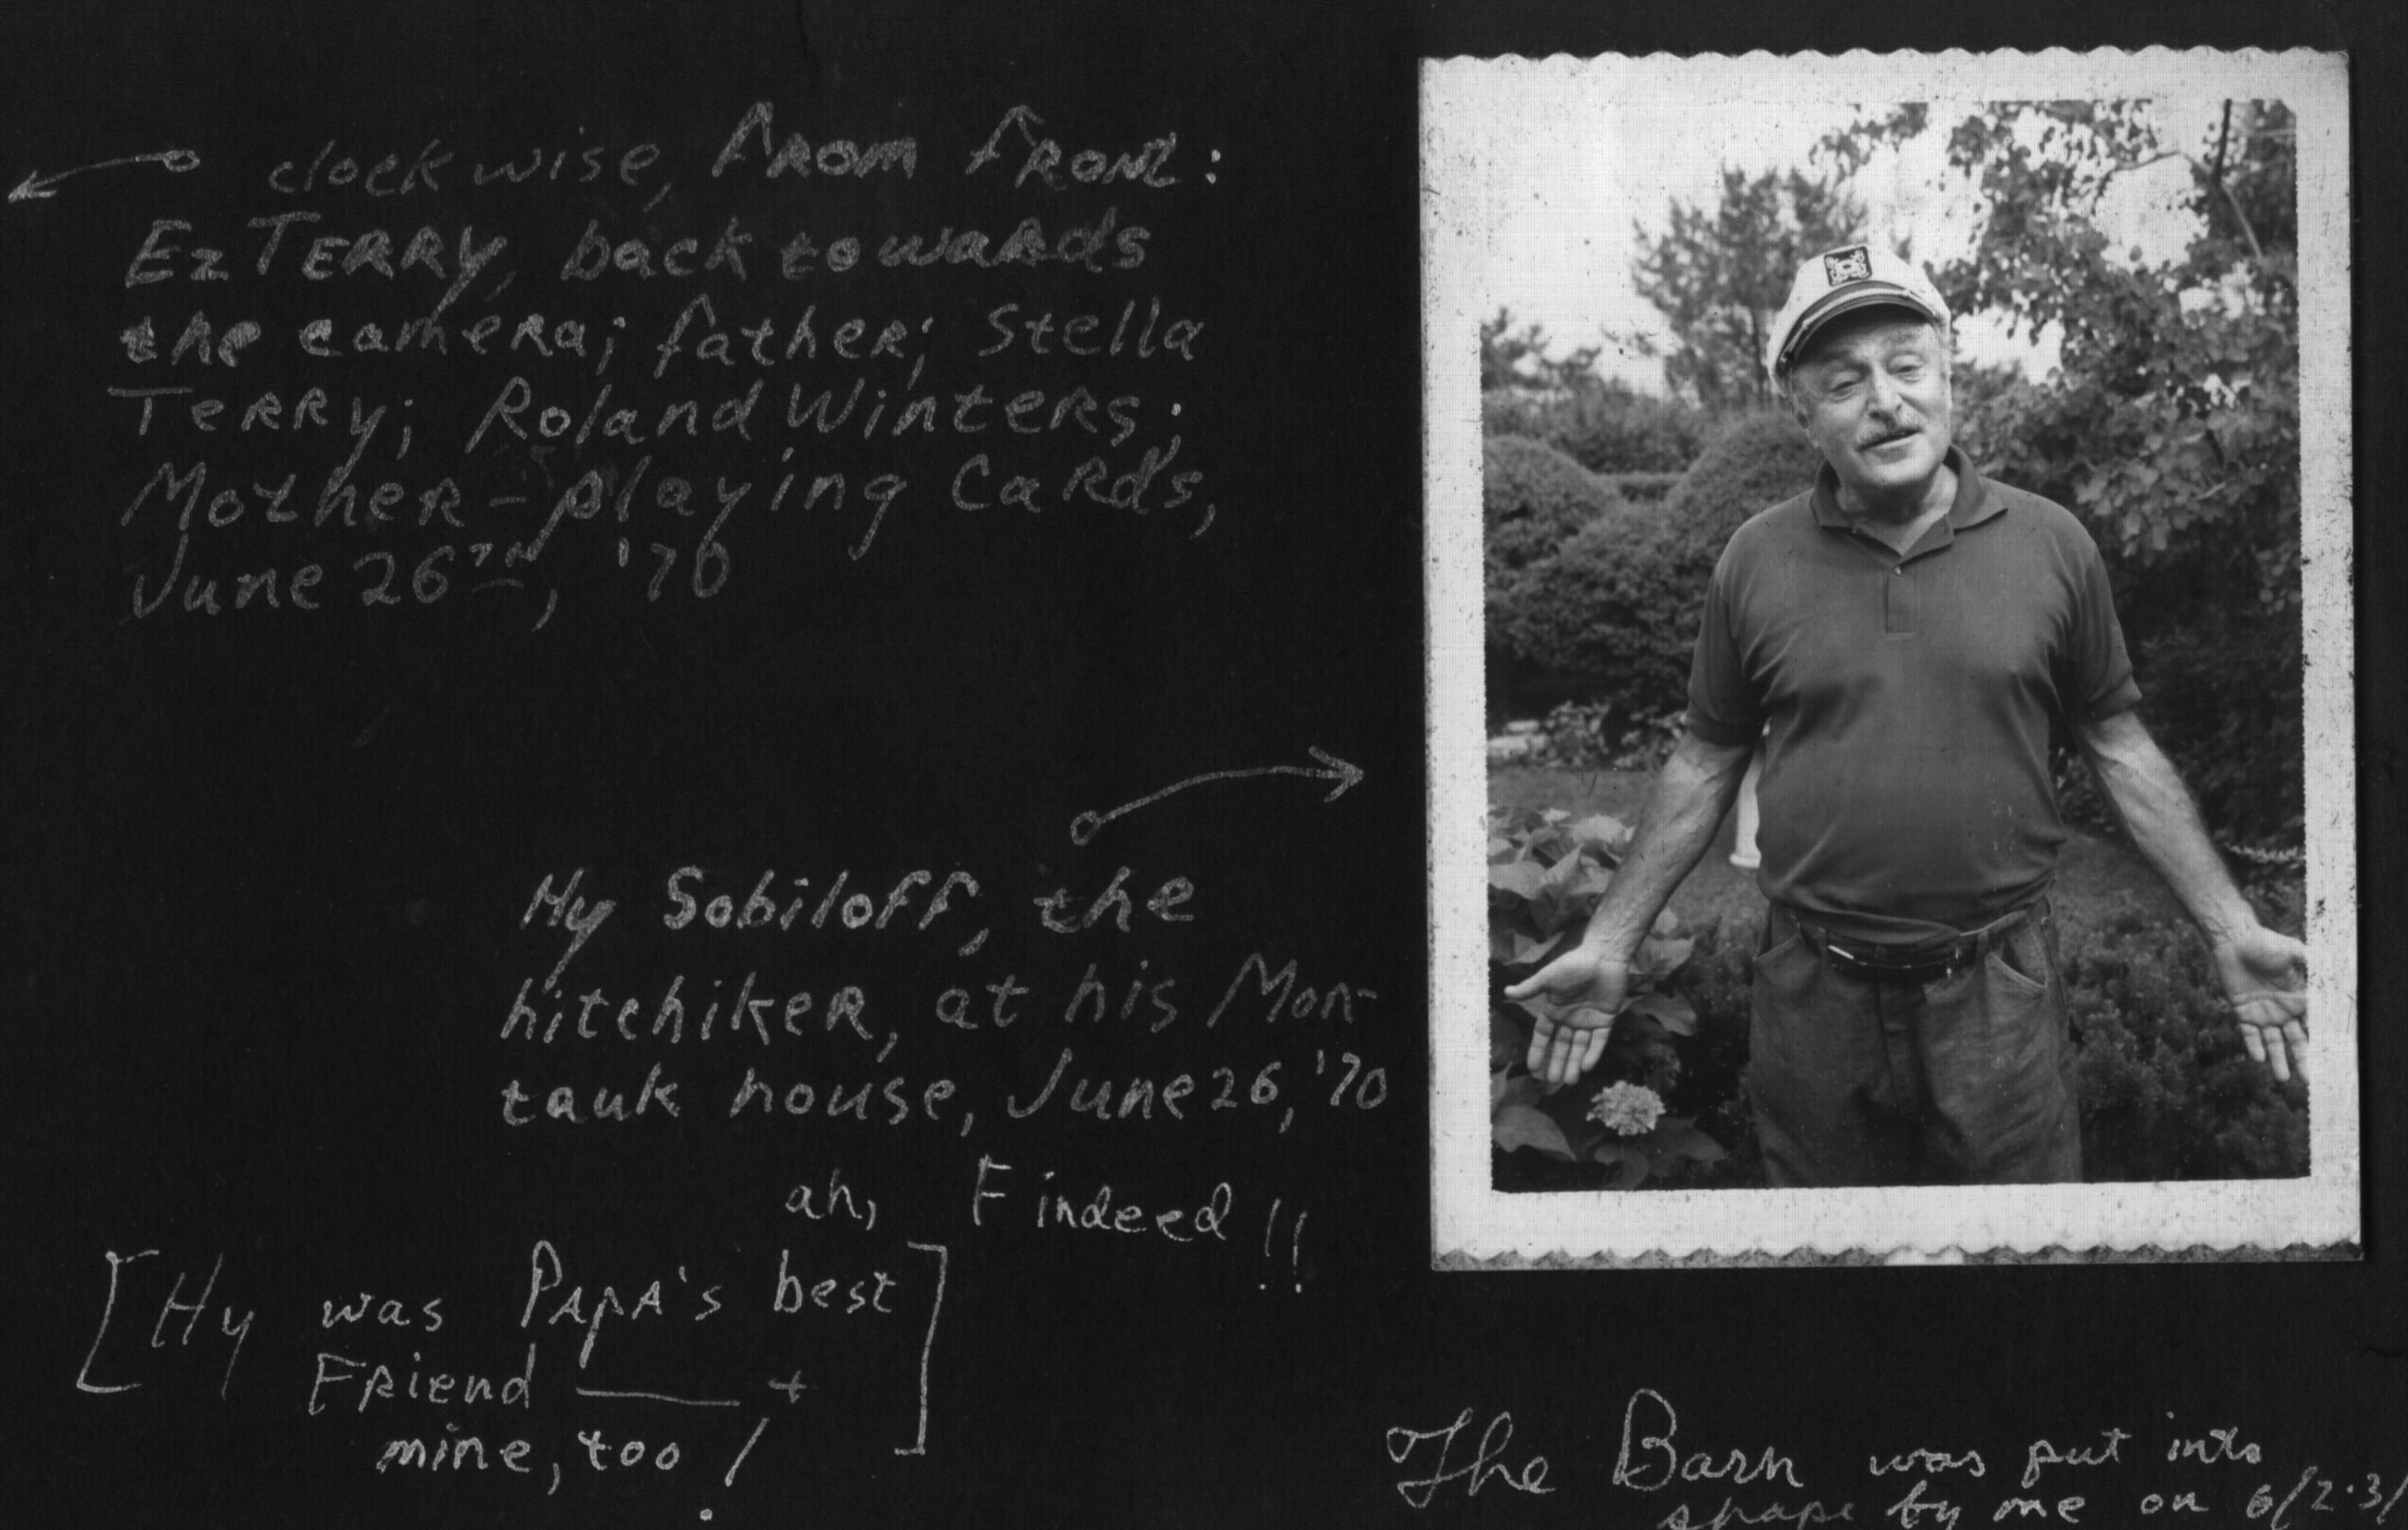 clockwise, from front:
Ez Terry, back towards
the camera; father; Stella
Terry; Roland Winters;
Mother - playing cards,
June 26TH, '70
Hy Sobiloff, the
hitchiker, at his Mon-
tauk house, June 26, '70
ah, F indeed!!
[Hy was Papa's best
Friend — +
mine, too!]
The Barn was put into
shape by me on 6/2·3/